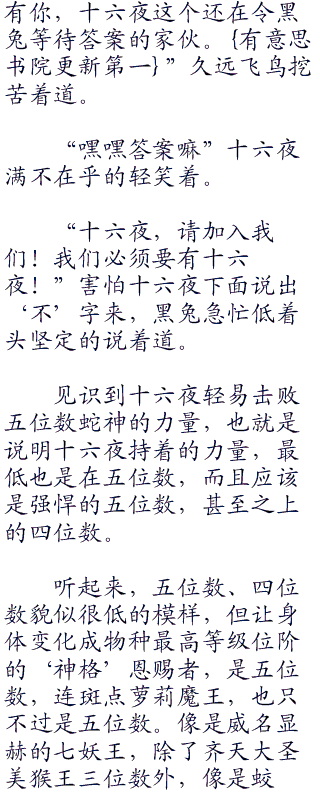 有你，十六夜这个还在令黑
兔等待答案的家伙。{有意思
书院更新第一}”久远飞鸟挖
苦着道。
“嘿嘿答案嘛”十六夜
满不在乎的轻笑着。
“十六夜，请加入我
们！我们必须要有十六
夜！”害怕十六夜下面说出
‘不’字来，黑兔急忙低着
头坚定的说着道。
见识到十六夜轻易击败
五位数蛇神的力量，也就是
说明十六夜持着的力量，最
低也是在五位数，而且应该
是强悍的五位数，甚至之上
的四位数。
听起来，五位数、四位
数貌似很低的模样，但让身
体变化成物种最高等级位阶
的‘神格’恩赐者，是五位
数，连斑点萝莉魔王，也只
不过是五位数。像是威名显
赫的七妖王，除了齐天大圣
美猴王三位数外，像是蛟